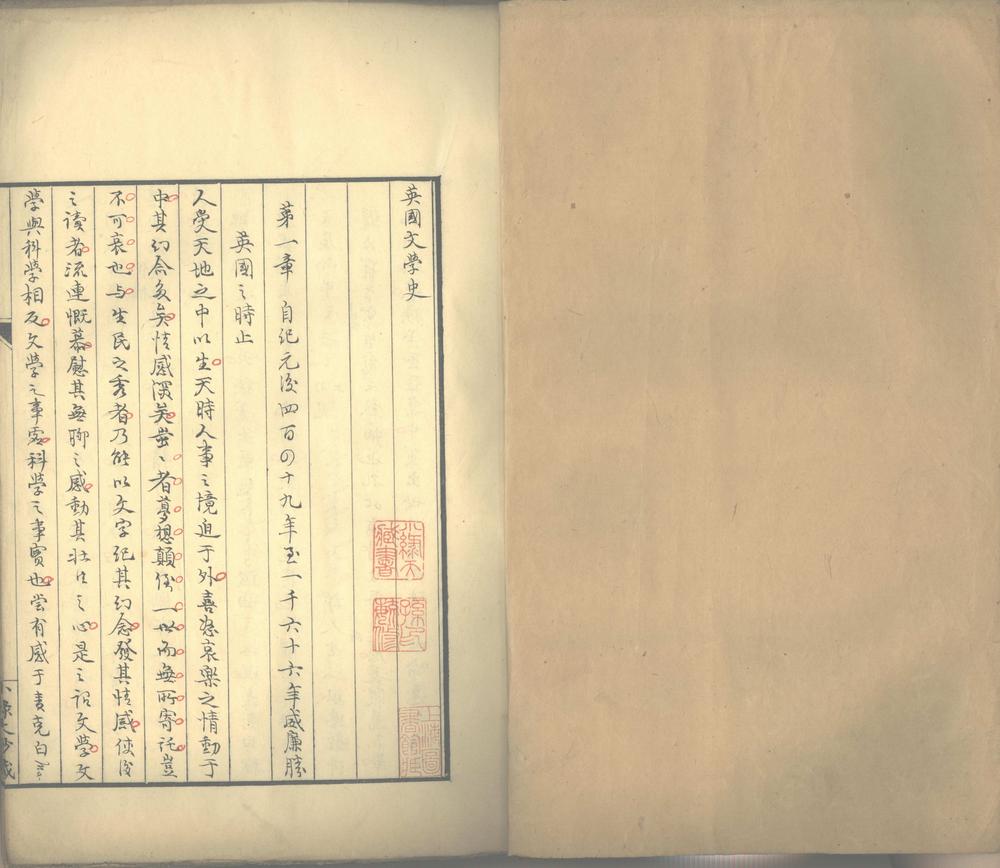 英國文學史
第一章 自紀元後四百四十九年至一千六十六年威廉勝
英國之時止
人受天地之中以生天時人事之境迫于外喜怒哀樂之情動于
中其幻念多矣情感深矣蚩〻者夢想顛倒一世而無所寄託豈
不可哀也与生民之秀者乃能以文字紀其幻念發其情感使後
之讀者流連慨慕慰其無聊之感動其壯往之心是之謂文學文
學與科學相反文學之事虛科學之事實也嘗有感于麦克白
小綠天
藏書
孫氏
毓修
上海圖
書館藏
小綠天鈔藏